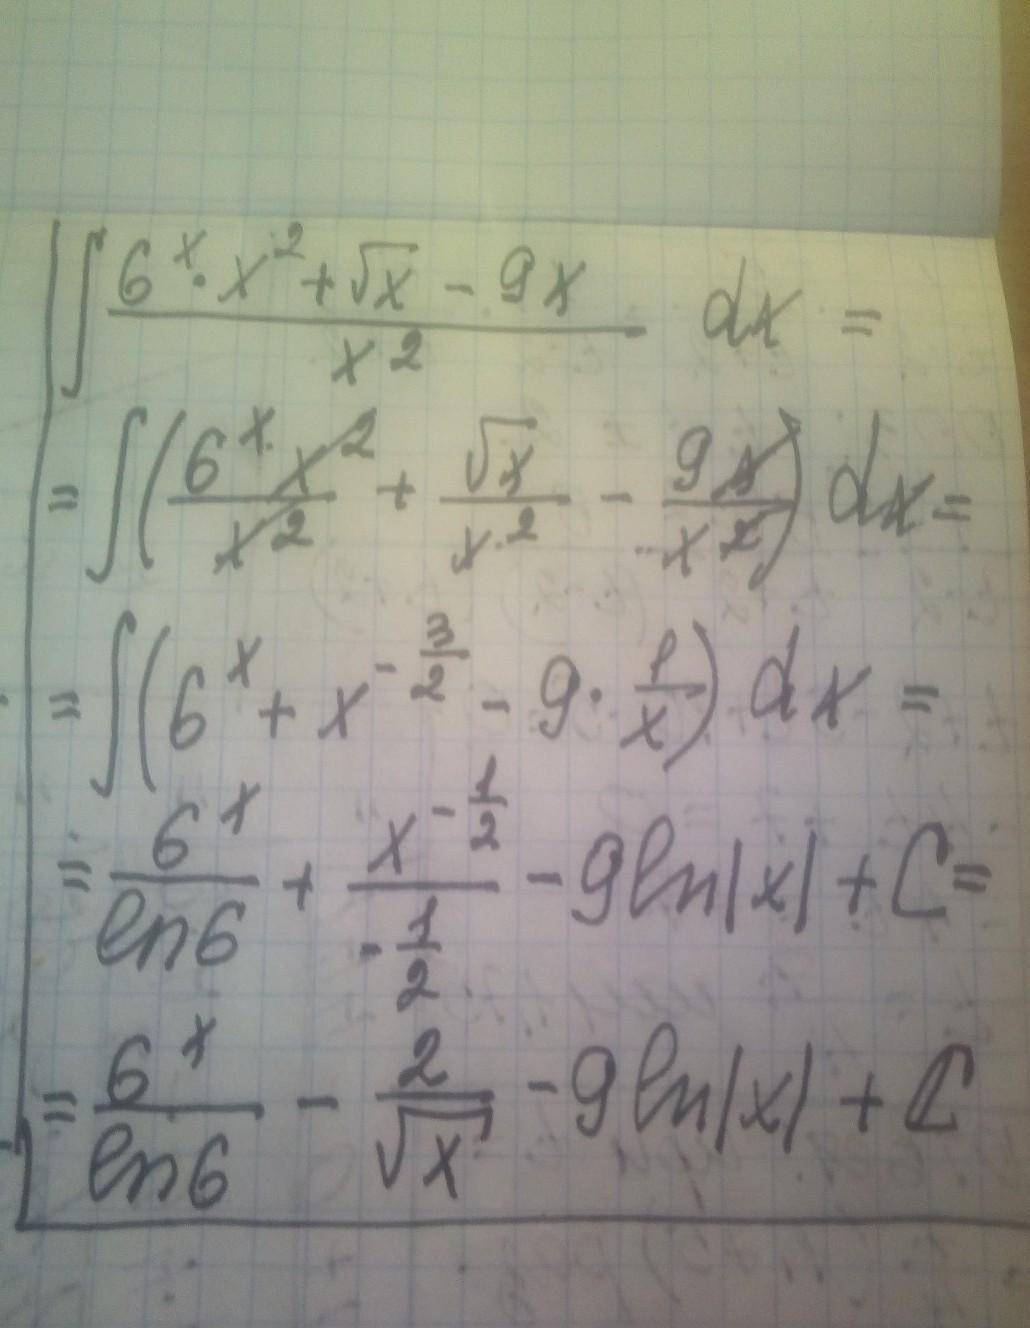 ∫ (6^x · x^2 + √x - 9x) / x^2 dx =
= ∫ (6^x · x^2 / x^2 + √x / x^2 - 9x / x^2) dx =
= ∫ (6^x + x^(-3/2) - 9 · 1/x) dx =
= 6^x / ln6 + x^(-1/2) / (-1/2) - 9 ln|x| + C =
= 6^x / ln6 - 2 / √x - 9 ln|x| + C